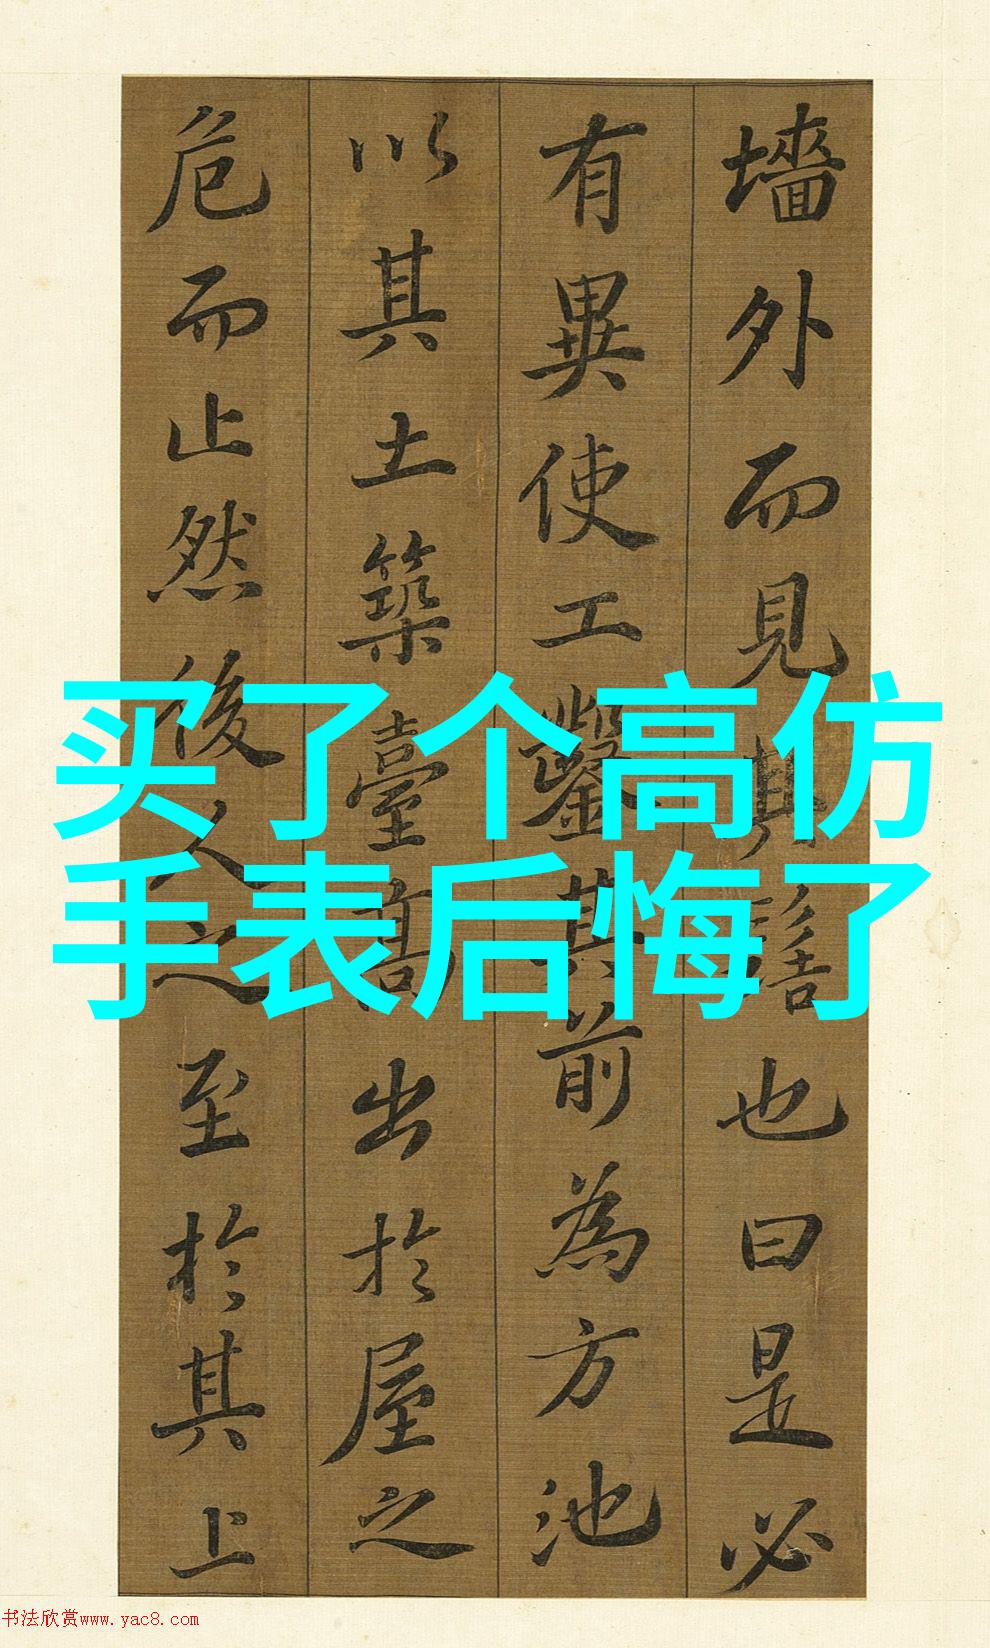 买了个高仿
手表后悔了
墻外而見其髻也曰是必
有異使工鑿其前為方池
以其土築臺高出於屋之
危而止然後人之至於其上
书法欣赏www.yac8.com